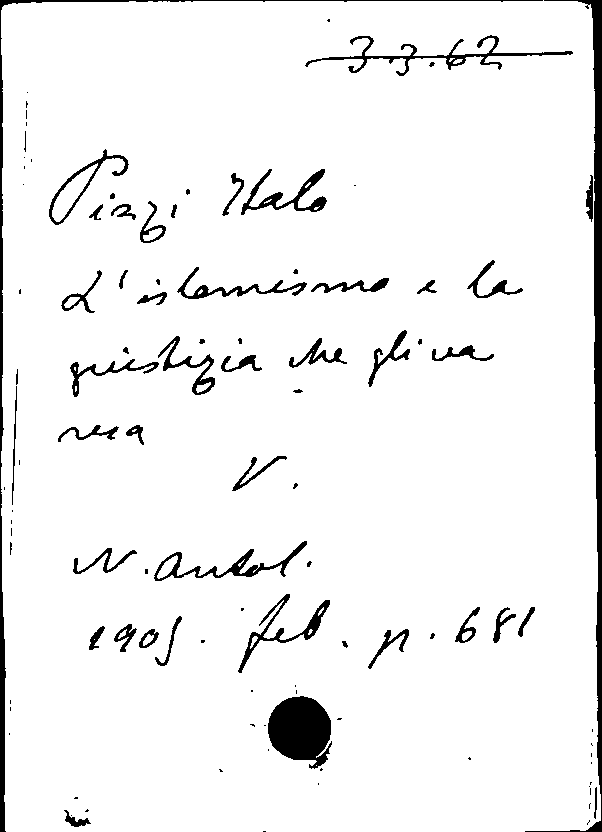 3.3.62
Pizzi Italo
L'islamismo e la
giustizia che gli va
resa
V.
N. Antol.
1905. feb. p. 681